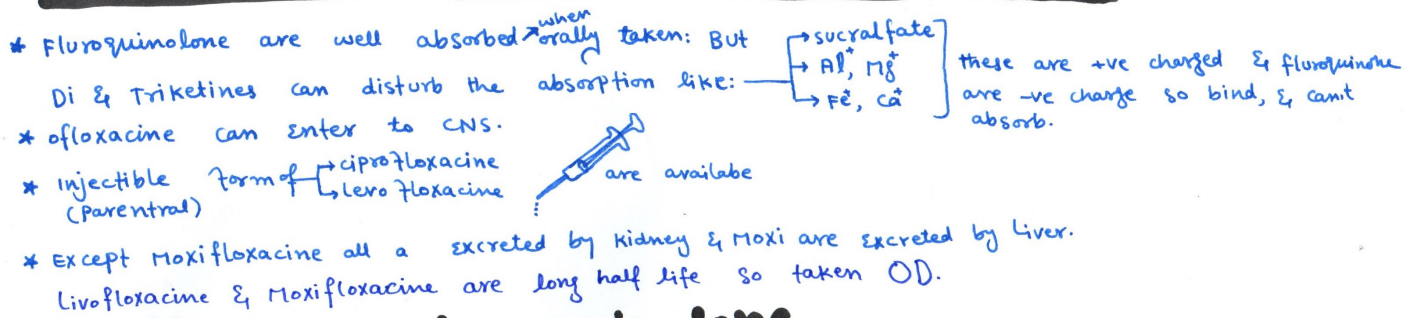 * Fluroquinolone are well absorbed when orally taken: But
Di & Triketines can disturb the absorption like:
→ sucralfate
→ Al⁺, Mg⁺
→ Fe⁺, Ca⁺
these are +ve charged & fluroquinone
are -ve charge so bind, & can't
absorb.
* ofloxacine can Enter to CNS.
* Injectible form of → ciprofloxacine
(Parentral) → levofloxacine
are availabe
* Except Moxifloxacine all a excreted by kidney & Moxi are Excreted by Liver.
Livofloxacine & Moxifloxacine are long half life so taken OD.